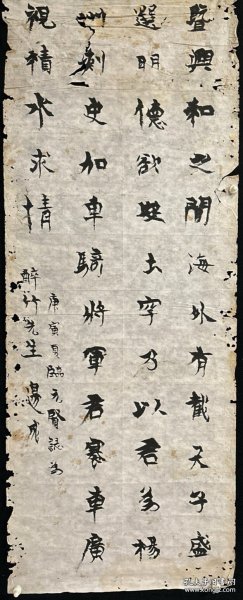 暨興和之開海外有截天子盛
選明德欲土宇乃以君為楊
州刺史加車騎將軍君褰車廣
視積水求情
庚寅夏臨元賢誌為
醉竹先生